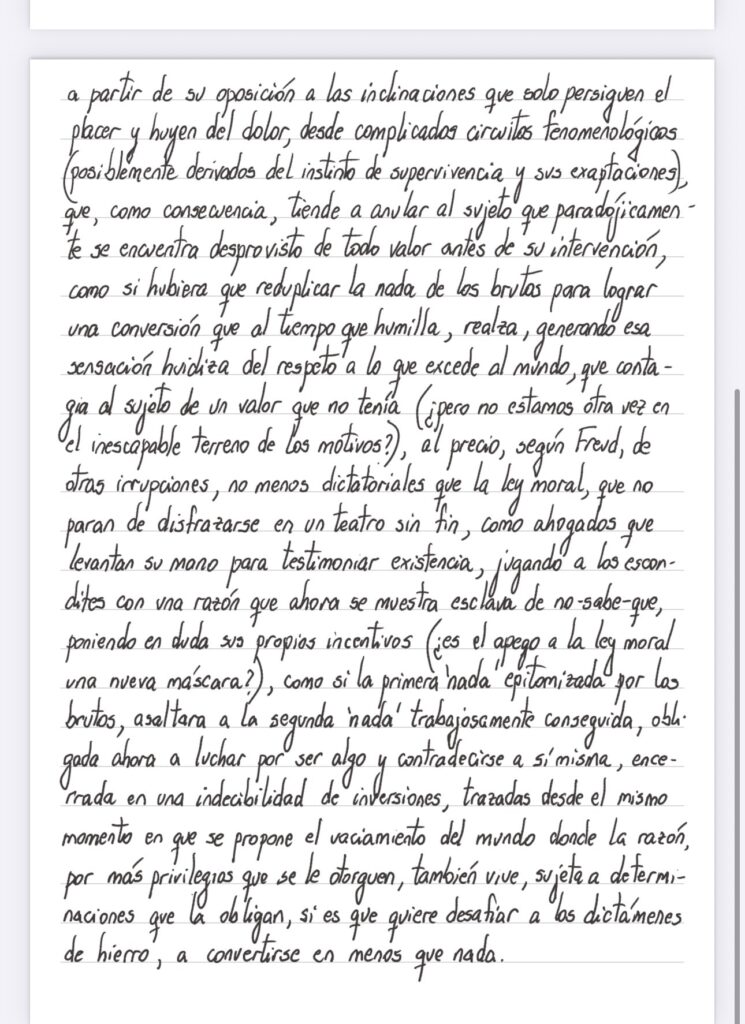 a partir de su oposición a las inclinaciones que solo persiguen el
placer y huyen del dolor, desde complicados circuitos fenomenológicos
(posiblemente derivados del instinto de supervivencia y sus exaptaciones),
que, como consecuencia, tiende a anular al sujeto que paradójicamen-
te se encuentra desprovisto de todo valor antes de su intervención,
como si hubiera que reduplicar la nada de los brutos para lograr
una conversión que al tiempo que humilla, realza, generando esa
sensación huidiza del respeto a lo que excede al mundo, que conta-
gia al sujeto de un valor que no tenía (¿pero no estamos otra vez en
el inescapable terreno de los motivos?), al precio, según Freud, de
otras irrupciones, no menos dictatoriales que la ley moral, que no
paran de disfrazarse en un teatro sin fin, como ahogados que
levantan su mano para testimoniar existencia, jugando a los escon-
dites con una razón que ahora se muestra esclava de no-sabe-que,
poniendo en duda sus propios incentivos (¿es el apego a la ley moral
una nueva máscara?), como si la primera 'nada' epitomizada por los
brutos, asaltara a la segunda 'nada' trabajosamente conseguida, obli-
gada ahora a luchar por ser algo y contradecirse a sí misma, ence-
rrada en una indecibilidad de inversiones, trazadas desde el mismo
momento en que se propone el vaciamiento del mundo donde la razón,
por más privilegios que se le otorguen, también vive, sujeta a determi-
naciones que la obligan, si es que quiere desafiar a los dictámenes
de hierro, a convertirse en menos que nada.